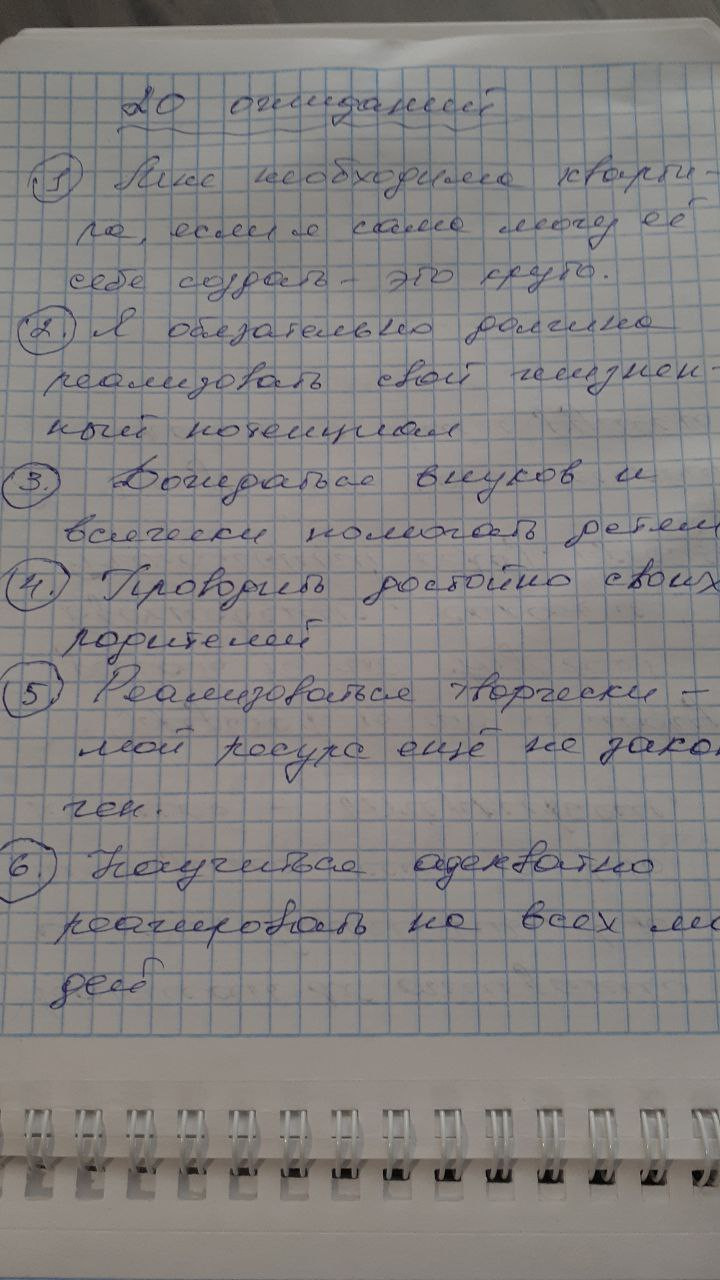 20 ожиданий
1 Мне необходима кварти-
ра, если я сама могу её
себе создать - это круто.
2. Я обязательно должна
реализовать свой жизнен-
ный потенциал
3. Дождаться внуков и
всячески помогать детям
4. Проводить достойно своих
родителей
5. Реализоваться творчески -
мой ресурс ещё не закон
чен.
6. Научиться адекватно
реагировать на всех лю
дей